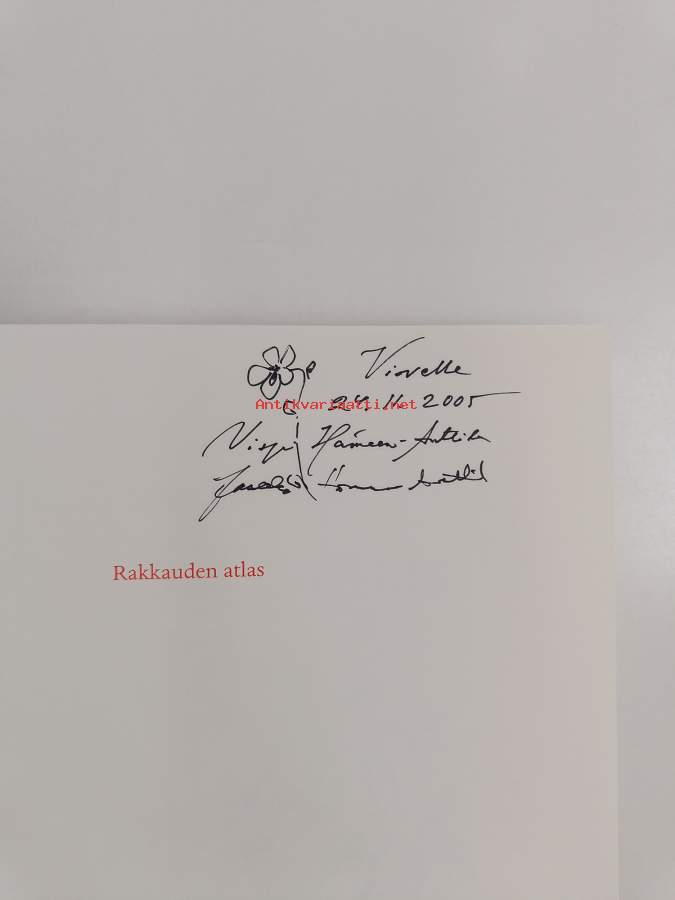 Viovelle
Antikvariaatti.net
24.11.2005
Virpi Hämeen-Anttila
Jaakko Hämeen-Anttila
Rakkauden atlas